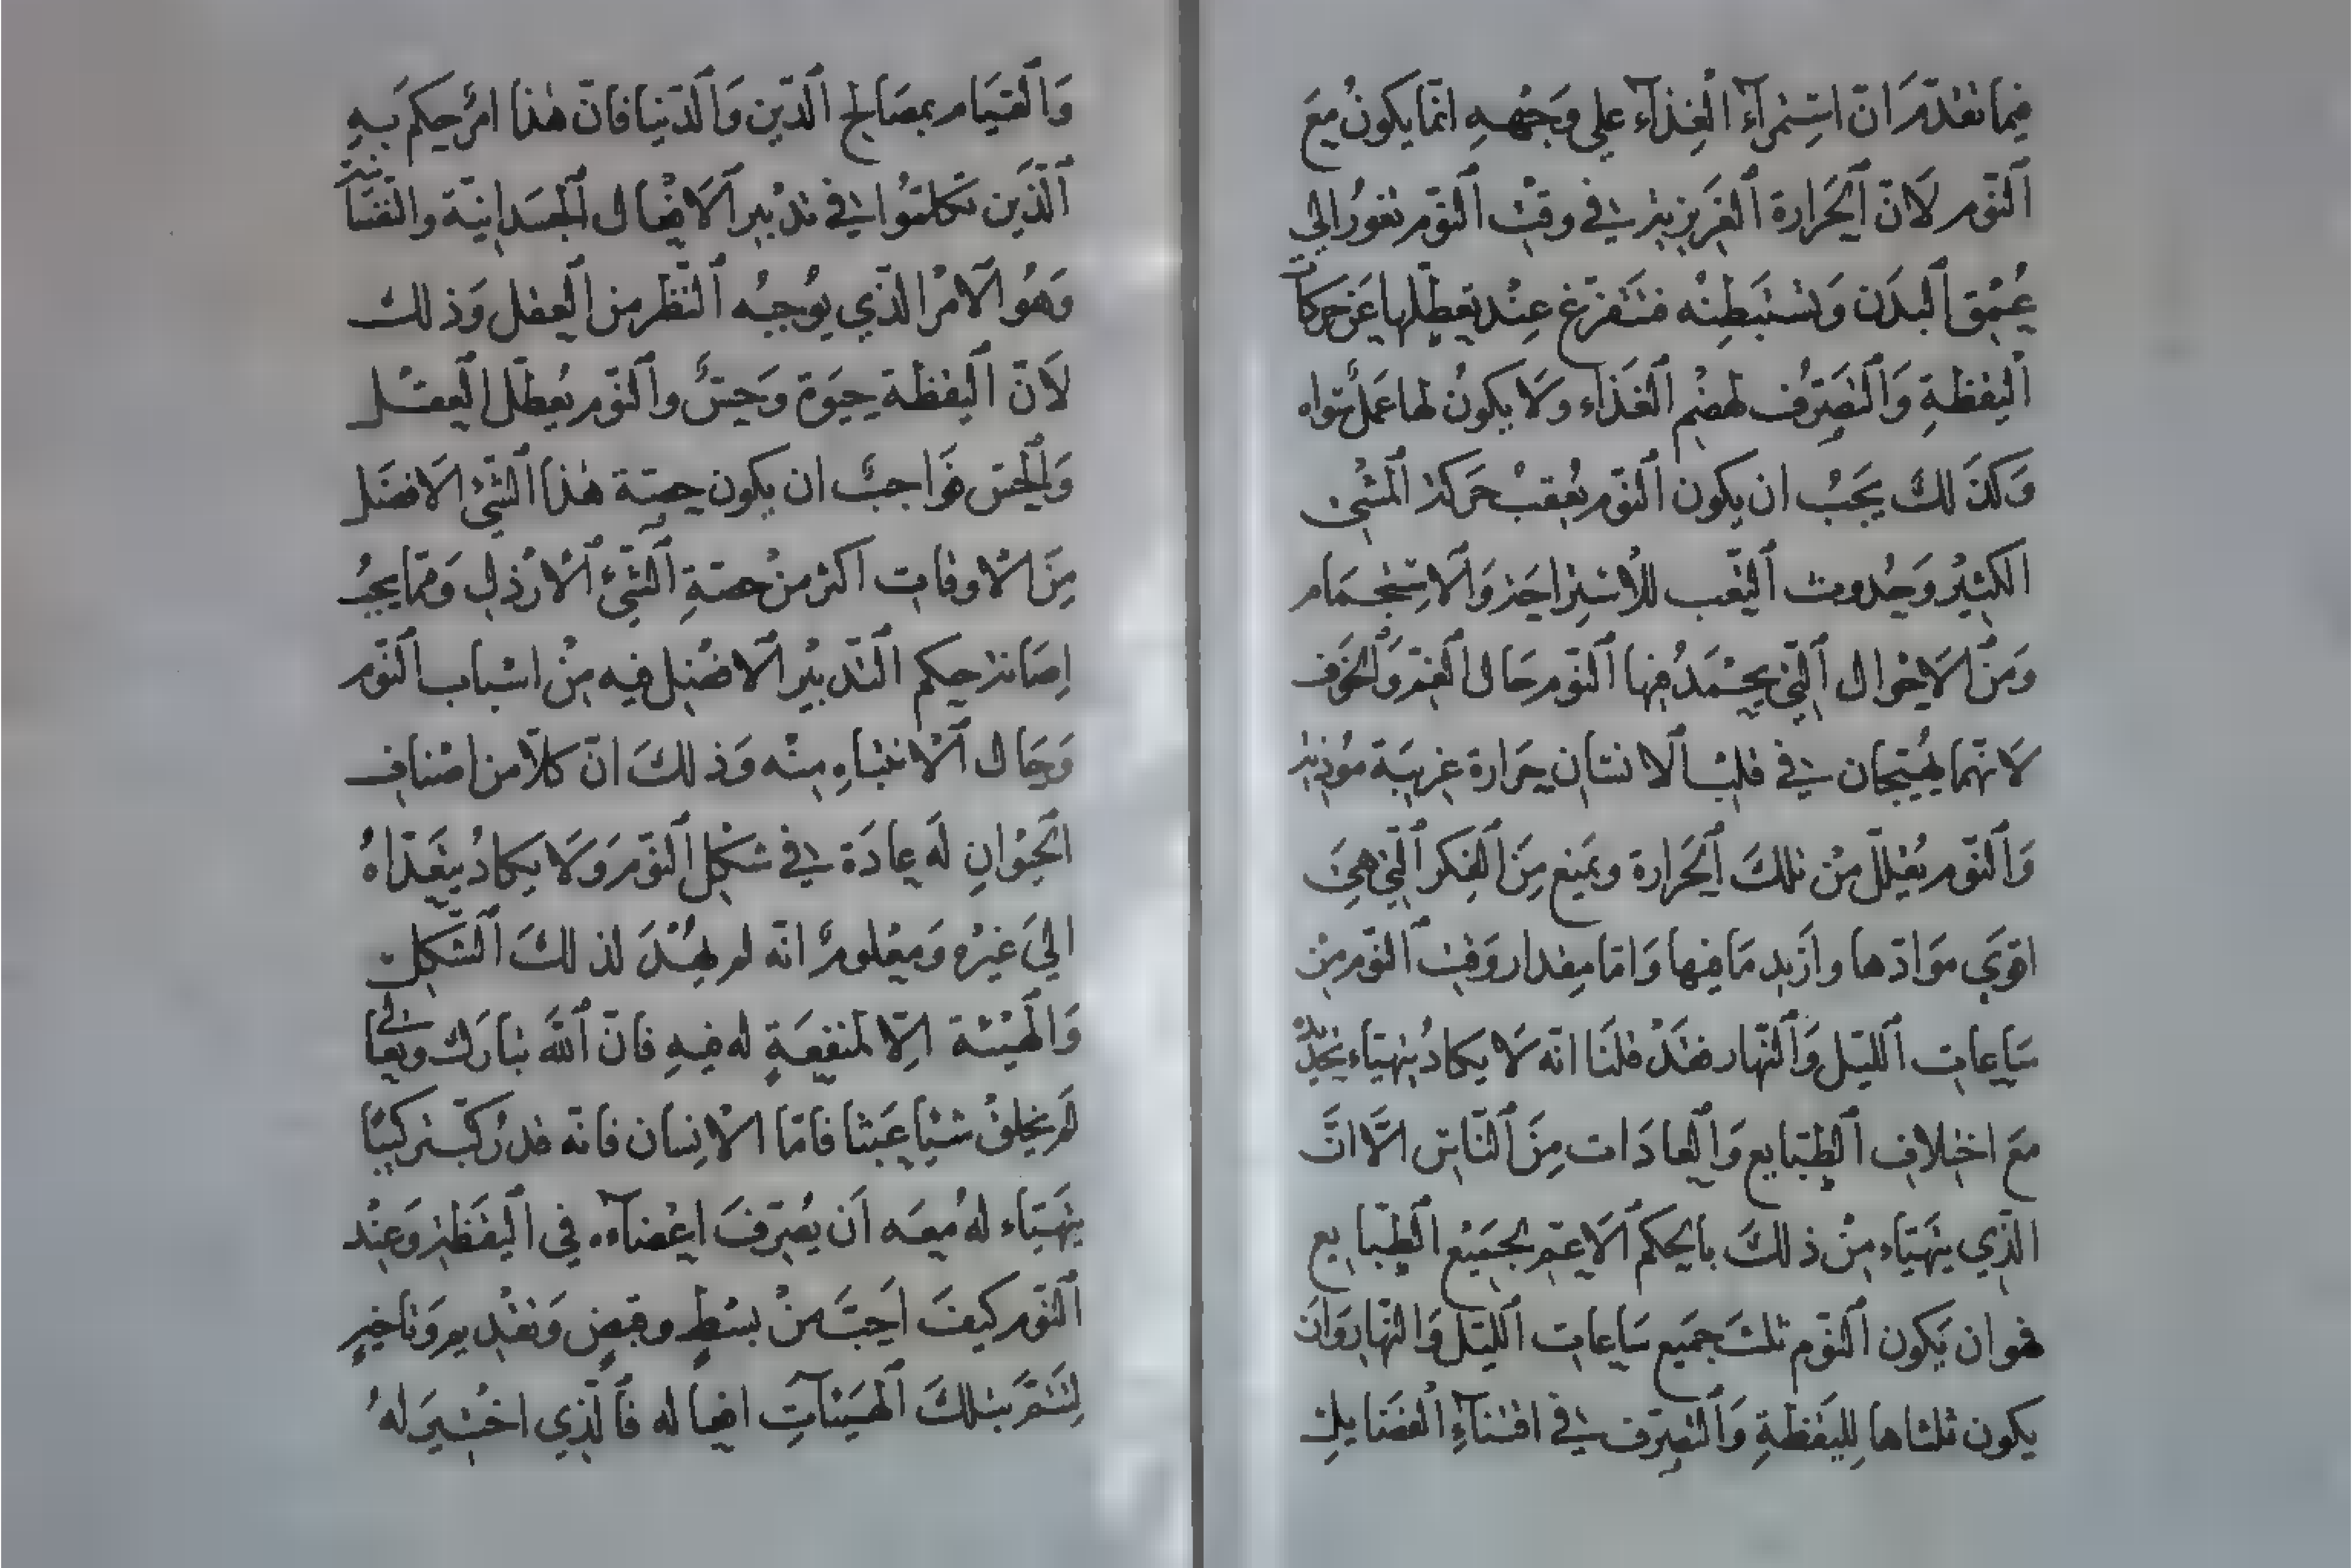 فيما تقدّمَ انّ استِمْرآءَ الْغِذآء علي وَجْههِ انّما يكونُ معَ
اَلنّوْم لَانّ اَلحَرارة اَلغَرِيزيّة في وقتِ اَلنّوْم تغورُ الي
عُمْق اَلبدَن وَتسْتَبطِنُه فتَتَفرّغ عِنْد تعَطّلها عَن حَركات
اَليقظةِ وَالتّصَرّف لهضْم اَلغَذَاء ولَا يكونُ لها عَملٌ سواه
وَكذَ لكَ يَجَبُ ان يكون اَلنّوْم يعقبْ حَركة اَلمشْى
الكثِيْر وَحُدوث اَلتّعَب للاْستِراحَة وَاَلاستِجْمَام
وَمنَ اَلاَحْوال اَلتّي يحْمَدُ فيها اَلنّوْم حَال اَلغمّ وَالْخَوف
لاَنهّما يُهيّجان في قلبْ اَلانسَان حَرارة غريبَة مُوذية
وَاَلنّوْم يُقلّل منْ تلكَ اَلحَرارة ويمَنع مِنَ اَلفِكر اَلتّي هيَ
اقوَي موَادّها وازَيد مَا فيها وَامّا مِقدار وَقت اَلنّوْم مِنْ
سَاعات اَللّيْل وَاَلنّهار فقَدْ قلنَا انّه لاَ يكادُ يتهيّاء تحَدّيده
مَعَ اختلاف اَلطّبايع وَالعادَات مِنَ اَلنّاسِ الاّ انَّ
الذّي يتهَيّاء مِنْ ذ لكَ بالحكم اَلاَعمّ لجَميْع اَلطّبايع
هو ان يَكون اَلنّوْم ثلثَ جَميَع سَاعات اَللّيْل وَالنّهار وَانَ
يكون ثلثاها لِليَقظةِ وَاَلتّصرّف في اقتناءِ اَلفضَايلِ
وَاَلقيَام بمصَالح اَلدّين وَاَلدّنيا فانّ هٰذا امْرٌ حكمَ بَهِ
اَلّذَين تكلمّوُا في تدْبير اَلاَفْعال اَلجَسَدانيّة والنّفسَانيّة
وَهُو اَلاَمْر الذّي يوُجبُه اَلنّظر من اَلعقل وَذ لك
لاَنّ اَليقظة حيَوة وَحِسٌّ واَلنّوْم يُعطّل اَلعقْل
وَالْحِسّ فوَاجبٌ ان يكون حصّة هٰذا اَلشّيْ الاَفضَل
مِنَ اْلاوقات اكثر منْ حصّةِ اَلشّيْ اَلاْرْذل وَممّا يجبُ
اِصَابَة حكم اَلتّدبيْر اَلاَفضْل فيه مِنْ اسْباب اَلنّوْم
وَحَال اَلاْنتباهِ مِنْه وَذ لكَ انّ كلاًّ من اصْناف
الحَيْوانِ لَه عادَة في شكْل اَلنّوْم وَلاَ يكادُ يتعَدّاهُ
اليَ غيْره وَمعْلومٌ انّه لم يُهْدَ لذ لكَ اَلشّكل
وَالْهَيْئة اِلاّ لمَنفعَةٍ له فيهِ فانّ اَللّهَ تبارَك وتعالي
لمَ يخلقْ شيْا عَبثا فامّا الاْنِسان فانّه قدْ رُكّبَ تركيبًا
يتهَيّاء لهُ معَه اَن يُصَرّفَ اعْضآءه في اليَقَظة وَعِنْد
اَلنّوْم كيفَ اَحَبَّ منْ بسْطٍ وقبضٍ وَتقْديم وَتاخيرٍ
لِتَتمَّ بتلكَ اَلهَيئآتِ افعاله فاَلّذي اخْتيَر لهُ